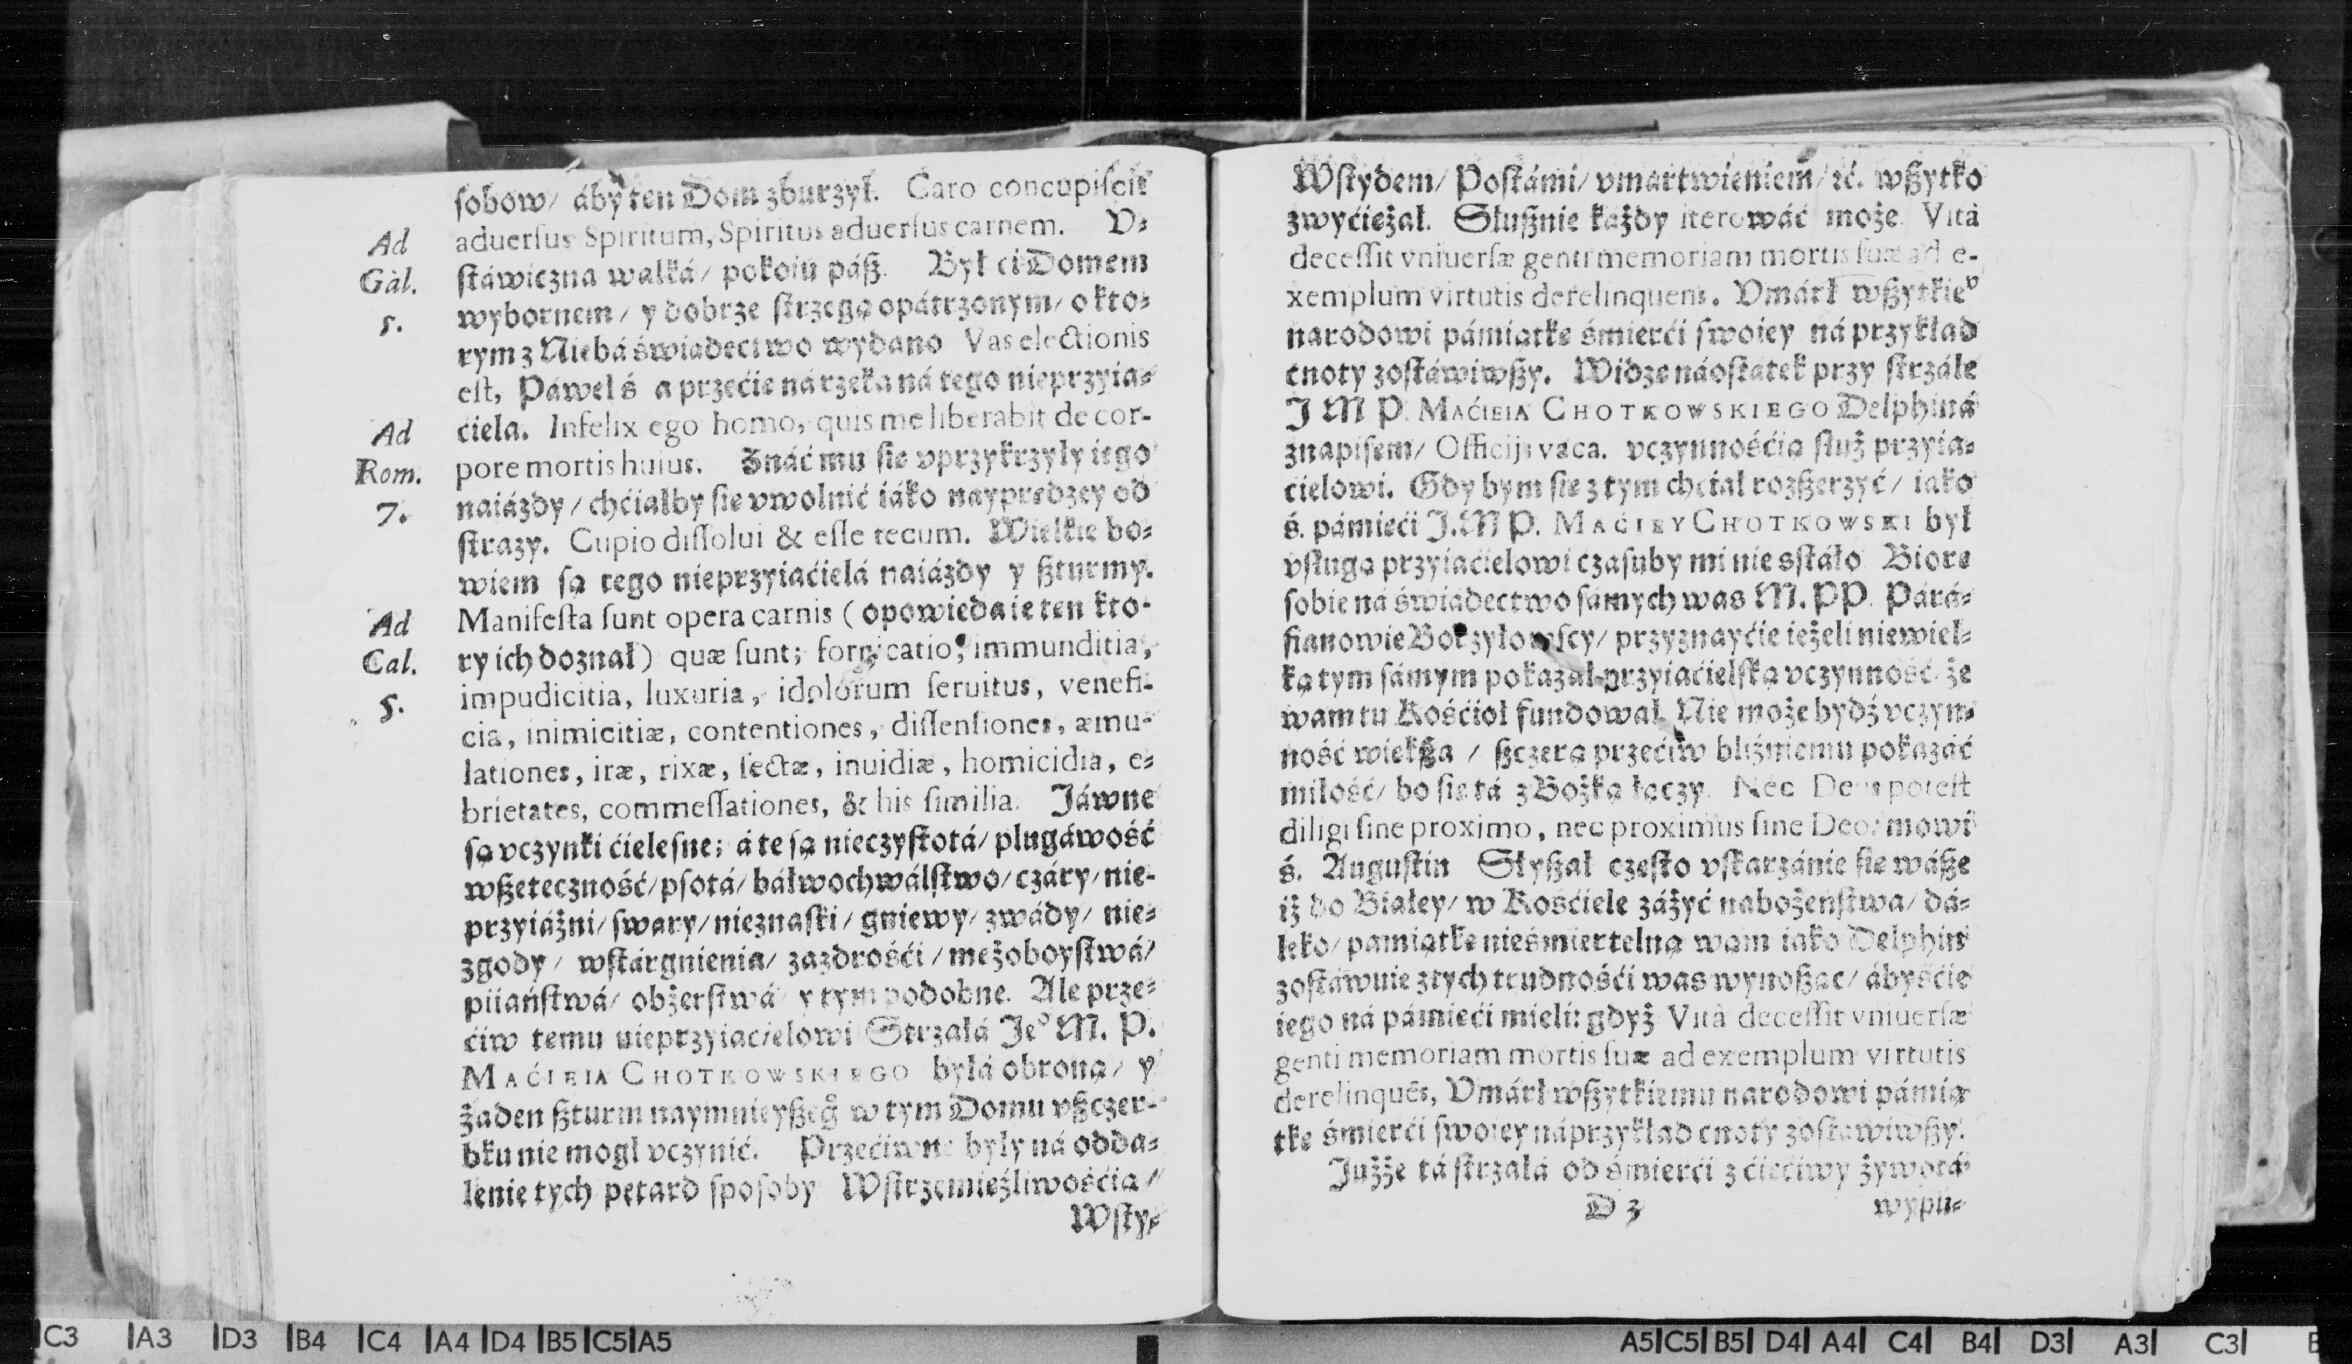 ſobow/ áby ten Dom zburzył. Caro concupiſcit
aduerſus Spiritum, Spiritus aduerſus carnem. V⸗
ſtáwiczna walká/ pokoiu páß. Był ci Domem
wybornem/ y dobrze ſtrzegą opátrzonym/ o kto⸗
rym z Niebá świadectwo wydano Vas electionis
eſt, Páweł ś a przećie nárzeka ná tego nieprzyia⸗
ćiela. Infelix ego homo, quis me liberabit de cor-
pore mortis huius. Znáć mu ſie vprzykrzyły iego
naiázdy/ chćiałby ſie vwolnić iáko nayprędzey od
ſtrazy. Cupio diſſolui & eſſe tecum. Wielkie bo⸗
wiem ſą tego nieprzyiaćielá naiázdy y ßturmy.
Manifeſta ſunt opera carnis (opowieda ie ten kto⸗
ry ich doznał) quæ ſunt; fornicatio, immunditia,
impudicitia, luxuria, idolorum ſeruitus, venefi-
cia, inimicitiæ, contentiones, diſſenſiones, æmu-
lationes, iræ, rixæ, ſectæ, inuidiæ, homicidia, e-
brietates, commeſſationes, & his ſimilia. Jáwne
ſą vczynki ćieleſne; á te ſą nieczyſtotá/ plugáwość
wßeteczność/ pſotá/ báłwochwálſtwo/ czáry/ nie-
przyiáźni/ ſwary/ nieznaſki/ gniewy/ zwády/ nie⸗
zgody/ wſtárgnienia/ zazdrośći/ mężoboyſtwá/
piiańſtwá/ obżerſtwá y tym podobne. Ale prze⸗
ćiw temu nieprzyiacielowi Strzałá Jeº M. P.
MAĆIEIA CHOTKOWSKIEGO byłá obroną/ y
żaden ßturm naymnieyßeg̊ w tym Domu vßczer-
bku nie mogł vczynić. Przećiwne były ná odda⸗
lenie tych petard ſpoſoby Wſtrzemieźliwośćią/
Wſty⸗
Ad
Gal.
5.
Ad
Rom.
7.
Ad
Cal.
5.
Wſtydem/ Poſtámi/ vmartwieniem̄/ ꝛć. wßytko
zwyćiężał. Słußnie każdy iterowáć może. Vità
deceſſit vniuerſæ genti memoriam mortis ſuæ ad e-
xemplum virtutis derelinquens. Vmárł wßytkieᵘ
narodowi pámiątke śmierći ſwoiey ná przykład
cnoty zoſtáwiwßy. Widze náoſtatek przy ſtrzále
J M P. MAĆIEIA CHOTKOWSKIEGO Delphiná
z napiſem/ Officijs vaca. vczynnośćią służ przyia⸗
ćielowi. Gdy bym ſie z tym chciał rozßerzyć/ iako
ś. pámieći J.M P. MAĆIEY CHOTKOWSKI był
vsługą przyiaćielowi czaſuby mi nie sſtáło Biore
ſobie ná świadectwo ſámych was M. PP. Párá⸗
fianowie Bokzyłowſcy/ przyznayćie ieżeli niewiel⸗
ką tym ſámym pokazał przyiaćielſką vczynność że
wam tu Kośćioł fundował. Nie może bydź vczyn⸗
ność wiekßa / ßczerą przećiw bliźniemu pokazáć
miłość/ bo ſie tá z Bożką łączy. Nec Deus poteſt
diligi ſine proximo, nec proximus ſine Deo: mowi
ś. Auguſtin Słyßał częſto vſkarzánie ſie wáße
iż do Białey/ w Kośćiele záżyć nabożeńſtwa/ dá⸗
leko/ pamiątke nieśmiertelną wam iako Delphin
zoſtáwuie z tych trudnośći was wynoßąc/ ábyśćie
iego ná pámieći mieli: gdyż Vità deceſſit vniuerſæ
genti memoriam mortis ſuæ ad exemplum virtutis
derelinquēs, Vmárł wßytkiemu narodowi pámią
tke śmierći ſwoiey ná przykład cnoty zoſtawiwßy.
Jużże tá ſtrzałá od śmierći z ćiećiwy żywotá
D 3
wypu⸗
C3 A3 D3 B4 C4 A4 D4 B5 C5 A5
A5 C5 B5 D4 A4 C4 B4 D3 A3 C3